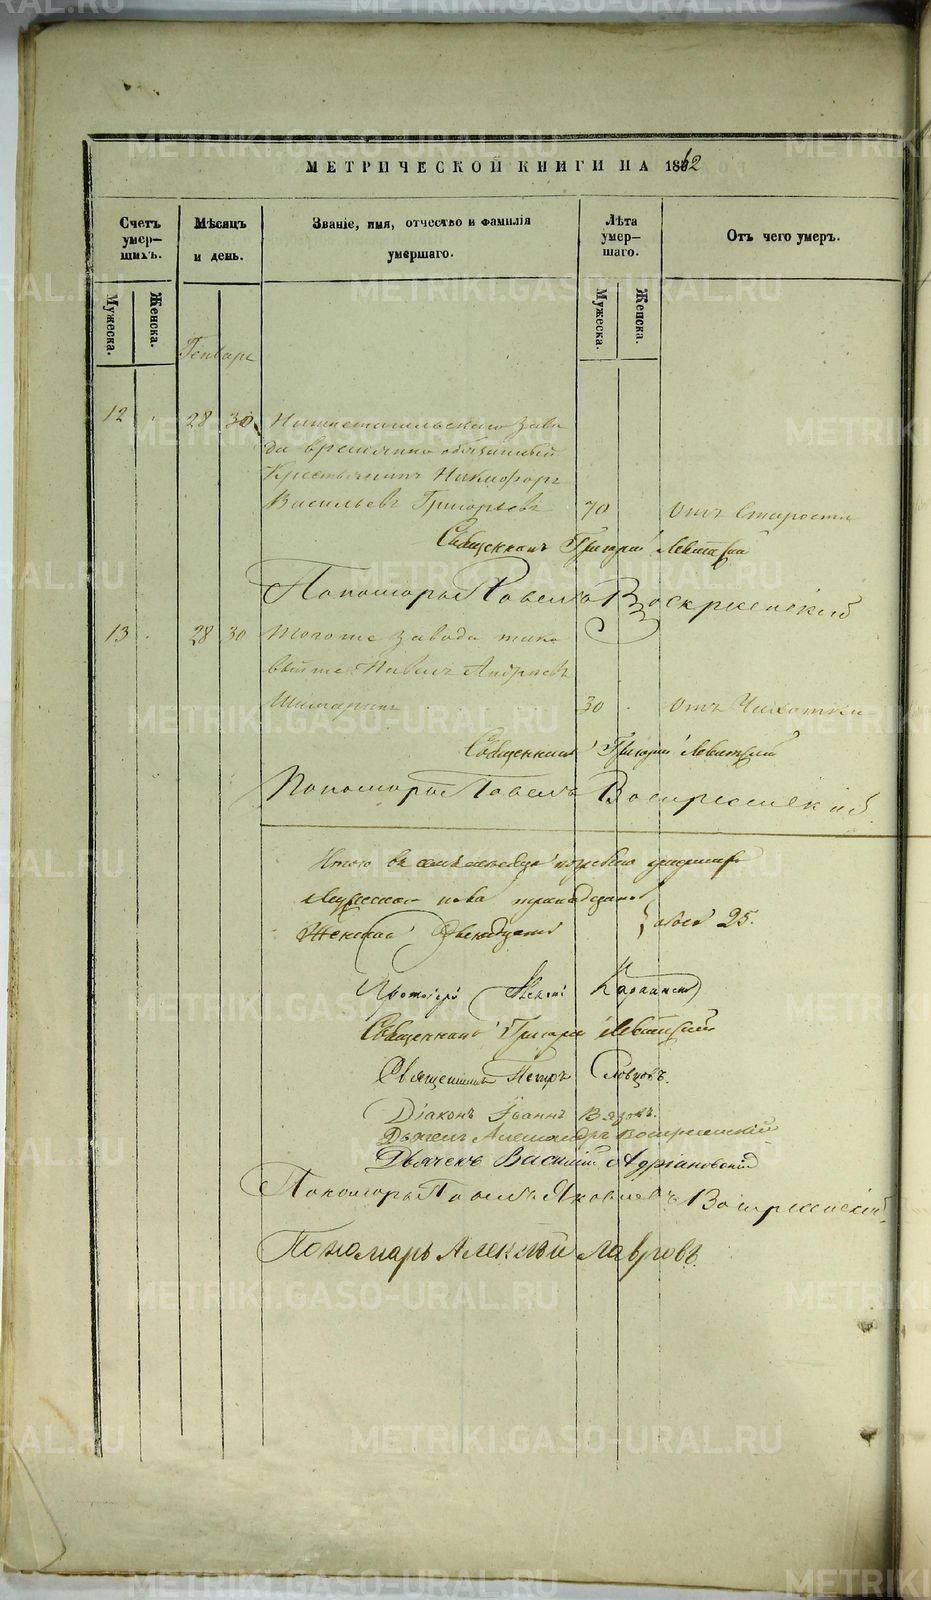 МЕТРИЧЕСКОЙ КНИГИ НА 1862
Счетъ умер-шихъ.
Мужеска.
Женска.
Мѣсяцъ и день.
Званіе, имя, отчество и фамилія умершаго.
Лѣта умер-шаго.
Мужеска.
Женска.
Отъ чего умеръ.
Генварь
12 28 30 Нижнетагильскаго заво
да временно обязанный
Крестьянинъ Никифоръ
Васильевъ Григорьевъ 70 Отъ Старости
Священникъ Григорій Левитскій
Пономарь Павелъ Воскресенскій
13 28 30 Тогоже завода тако
выйже Павелъ Андреевъ
30 Отъ Чахотки
Священникъ Григорій Левитскій
Пономарь Павелъ Воскресенскій
Итого въ семъ мѣсяцѣ умерло
Мужеска пола тринадцать
Женска двенадцать } обоего 25.
Протоіерей
Священникъ Григорій Левитскій
Священникъ Петръ Словцовъ.
Діаконъ Іоаннъ
Дьячекъ Александръ Воскресенскій
Дьячекъ Василій Адріановскій
Пономарь Павелъ Яковлевъ Воскресенскій
Пономарь Алексѣй Лавровъ.
METRIKI.GASO-URAL.RU